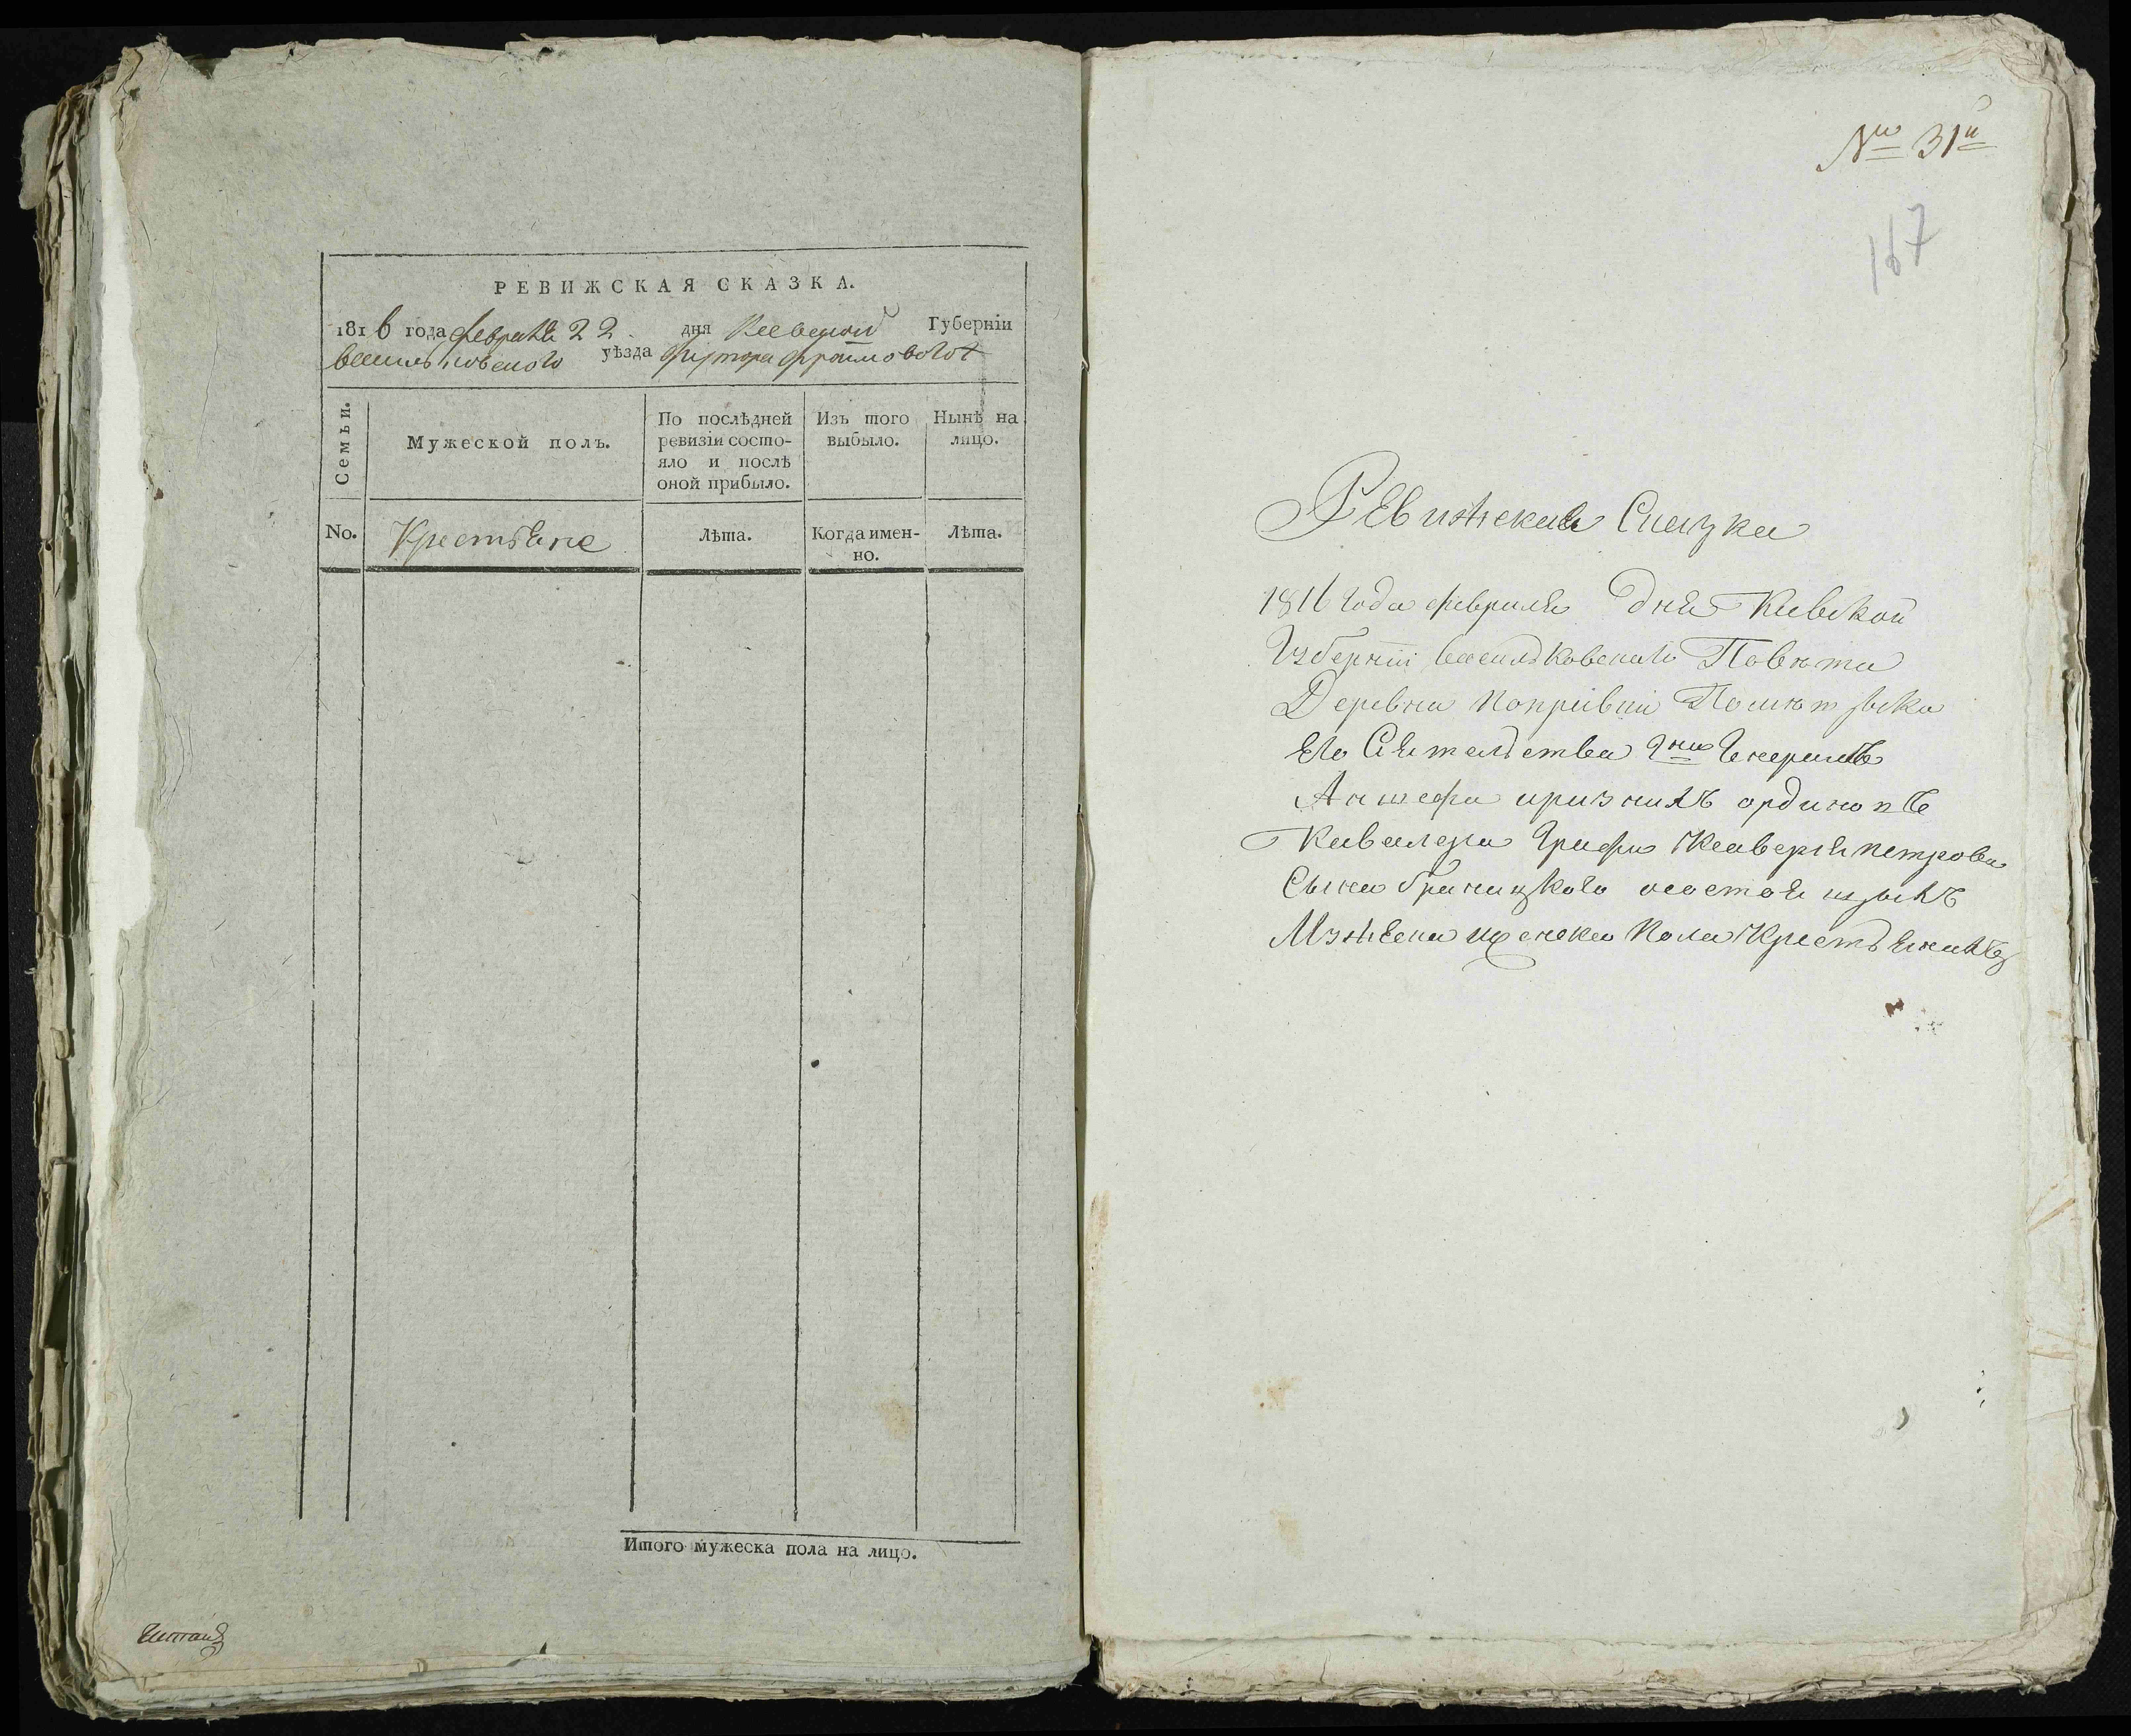 РЕВИЖСКАЯ СКАЗКА.
1816 года февраля 22 дня Киевской Губерніи
васильковского уѣзда футора
Семьи.
Мужеской полъ.
По послѣдней ревизіи состо-
яло и послѣ
оной прибыло.
Изъ того
выбыло.
Нынѣ на
лицо.
No.
Крестьяне
Лѣта.
Когда имен-
но.
Лѣта.
Итого мужеска пола на лицо.
No 31й
167
Ревижская Сказка
1816 года февраля дня Киевской
Губерніи васильковского Повѣта
Деревни Помѣщика
Его Сіятельства Гна Генерала
Аншефа и разнихъ ординовъ
Кавалера Графа Ксаверія петрова
Сына браницкого осостоящихъ
Мужеска и женска пола Крестьянахъ